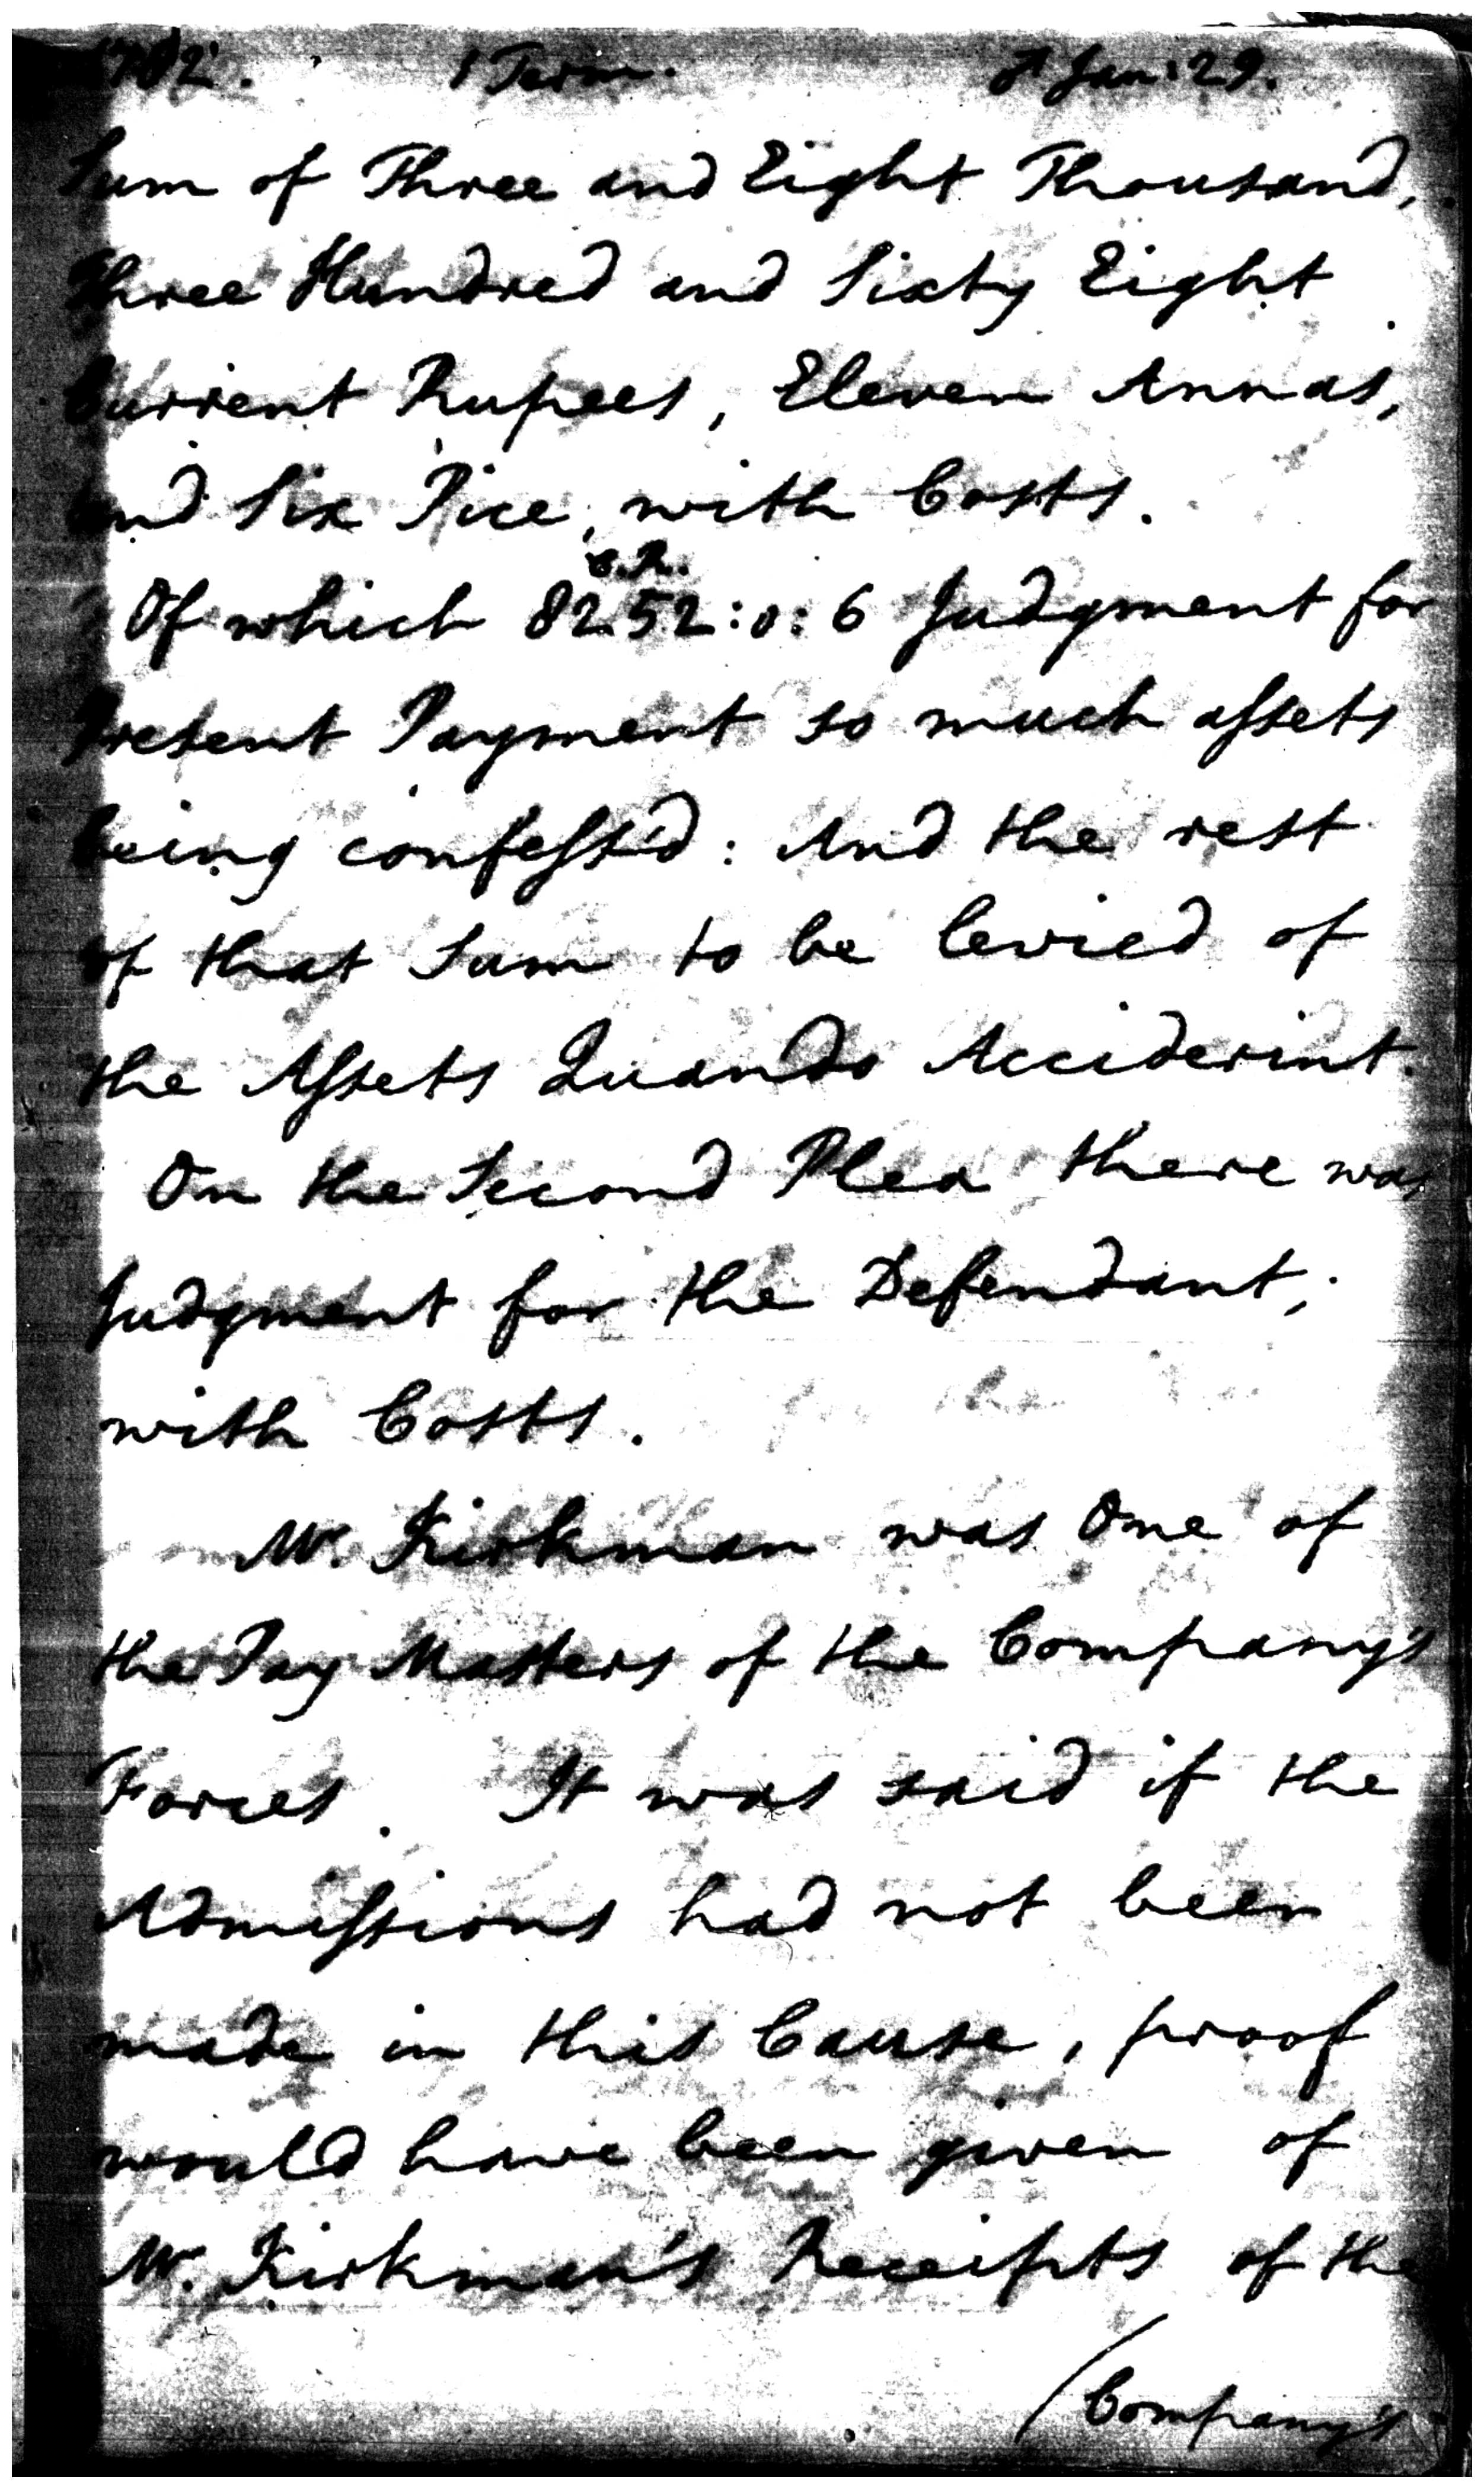 1782. 1 Term. Jan: 29.
Sum of Three and Eight Thousand,
Three Hundred and Sixty Eight
Current Rupees, Eleven Annas,
and Six Pice, with Costs.
C.R.
Of which 8252:0:6 Judgment for
Present Payment so much assets
being confess'd: And the rest
of that Sum to be levied of
the Assets Quando Acciderint.
On the Second Plea there was
Judgment for the Defendant;
with Costs.
Mr. Kirkman was One of
the Pay Masters of the Company's
Forces. It was said if the
Admissions had not been
made in this Cause, proof
would have been given of
Mr. Kirkman's Receipts of the
Company's